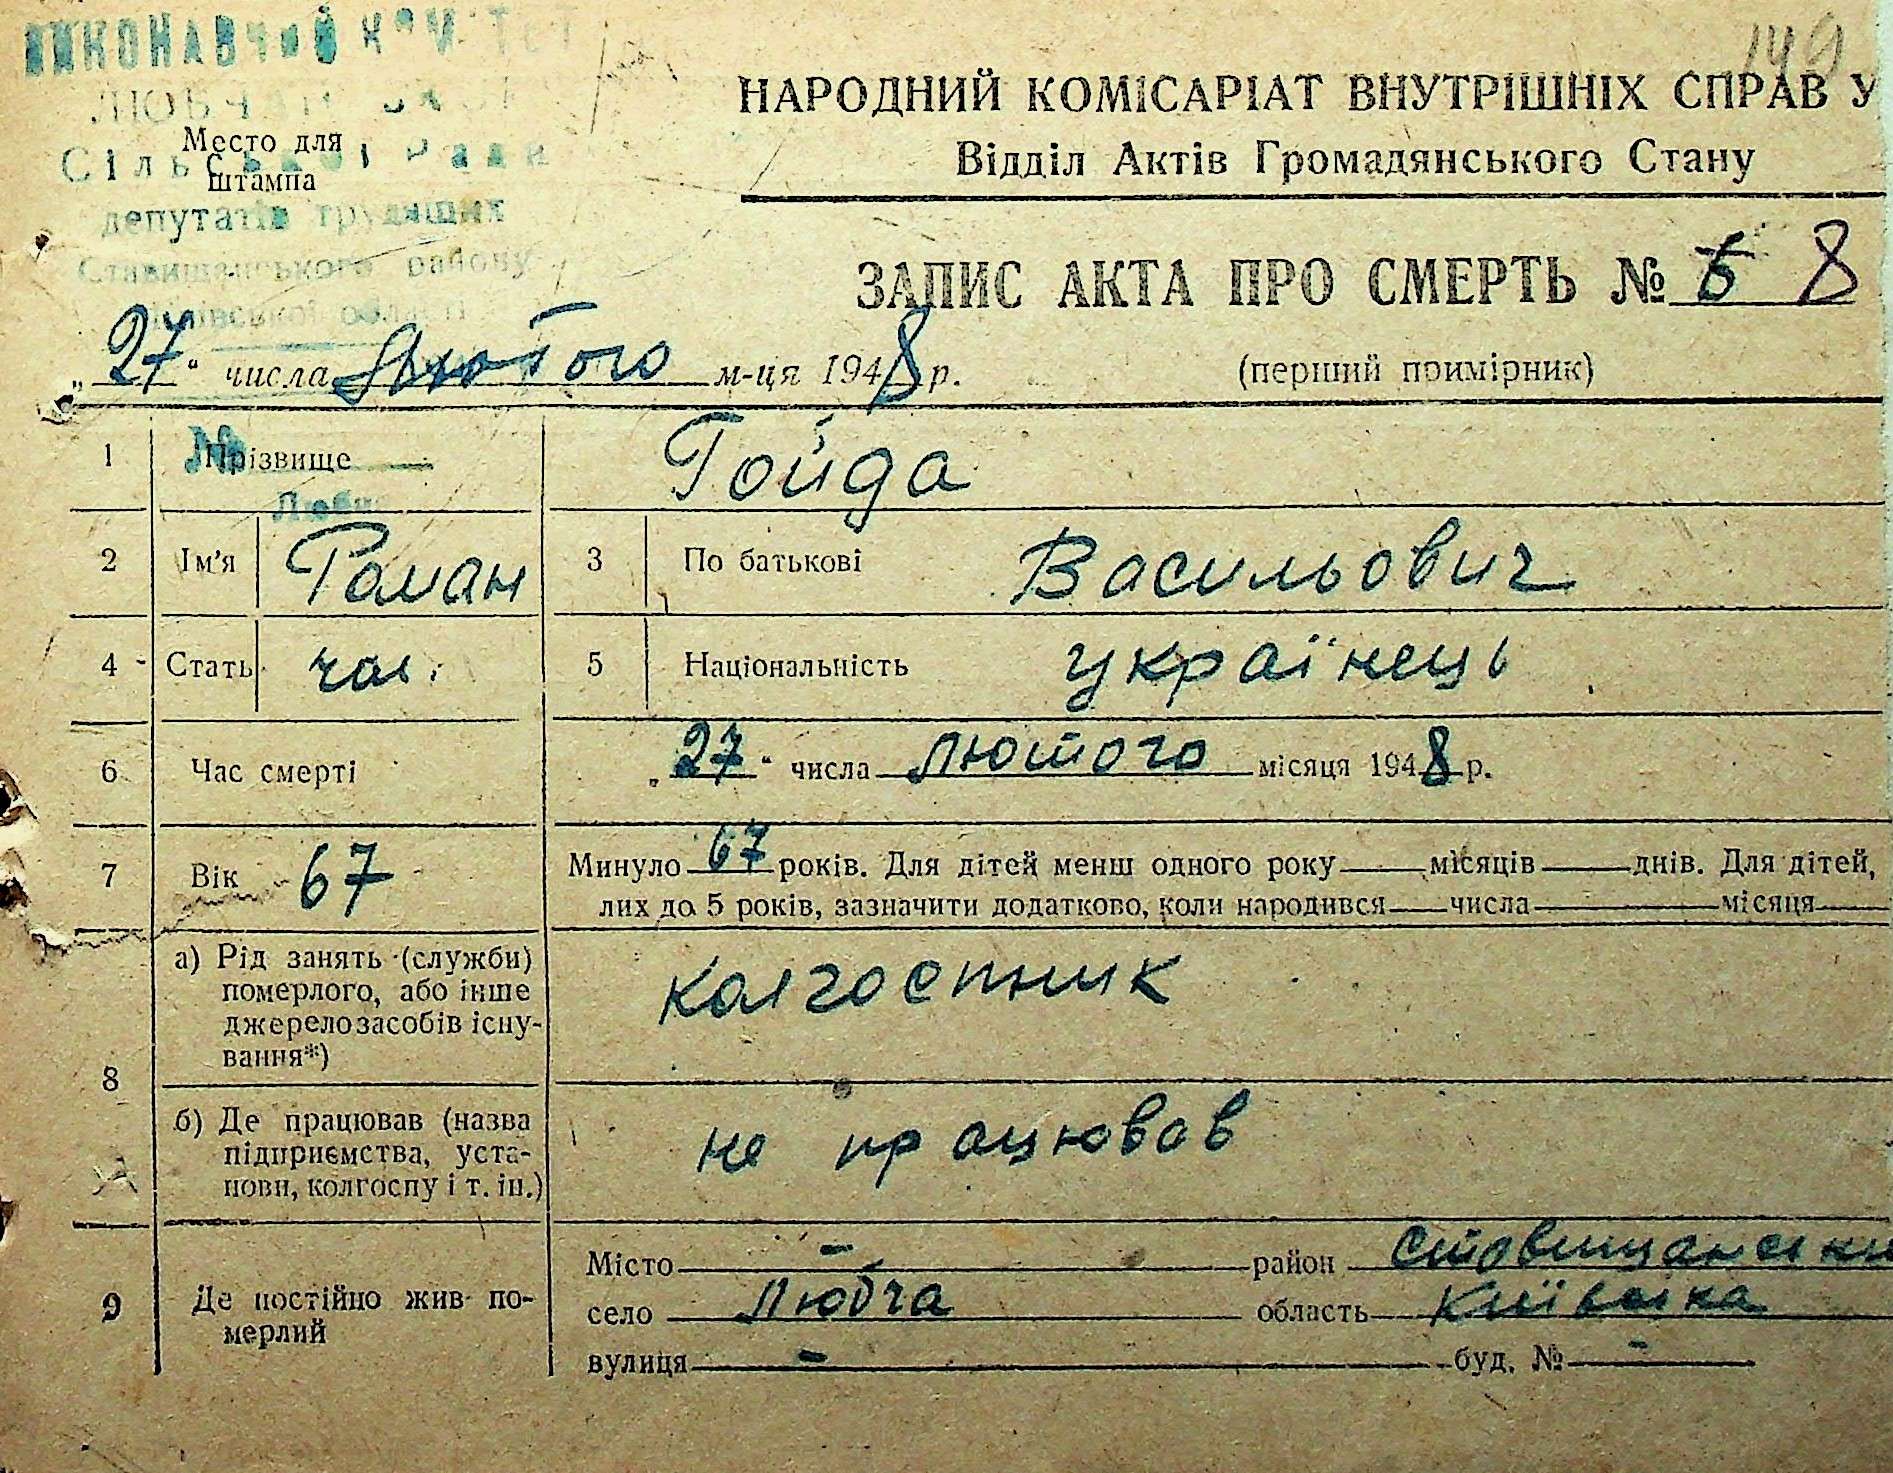 149
ВИКОНАВЧИЙ КОМІТЕТ
НАРОДНИЙ КОМІСАРІАТ ВНУТРІШНІХ СПРАВ У
Место для
штампа
Сільської Ради
Відділ Актів Громадянського Стану
депутатів трудящих
Ставищанського району
області
ЗАПИС АКТА ПРО СМЕРТЬ № 6 8
„27“ числа лютого м-ця 1948 р.
(перший примірник)
1 Прізвище Гойда
2 Ім'я Роман 3 По батькові Васильович
4 Стать чол. 5 Національність українець
6 Час смерті „27“ числа лютого місяця 1948 р.
7 Вік 67 Минуло 67 років. Для дітей менш одного року місяців днів. Для дітей,
лих до 5 років, зазначити додатково, коли народився числа місяця
8 а) Рід занять (служби)
померлого, або інше
джерело засобів існу-
вання*)
колгоспник
б) Де працював (назва
підприємства, уста-
нови, колгоспу і т. ін.)
не працював
9 Де постійно жив по-
мерлий
Місто – район Ставищански
село Любча область Київська
вулиця – буд. № –